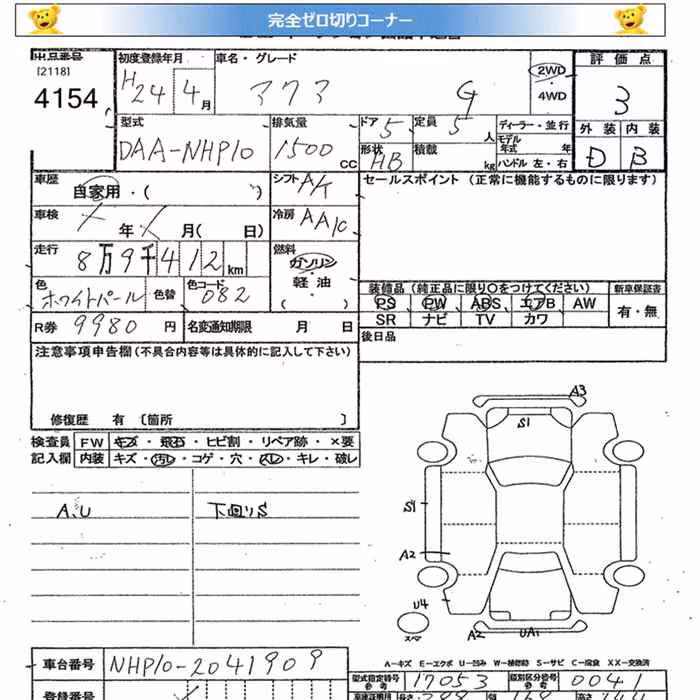 完全ゼロ切りコーナー
出品番号
[2118]
4154
初度登録年月
H24 4月
車名・グレード
アクア G
2WD
・4WD
評価点
3
外装 内装
D B
型式
DAA-NHP10
排気量
1500 CC
ドア 5
定員 5人
形状 HB
積載 kg
ディーラー・並行
モデル年式 年
ハンドル 左・右
車歴
自家用・( )
シフト A/K
セールスポイント (正常に機能するものに限ります)
車検
年 月( 日)
冷房 AA/C
走行
8万9千412km
燃料
ガソリン
・軽油
・( )
色
ホワイトパール
色替
色コード
082
装備品 (純正品に限り○をつけてください)
新車保証書
PS PW ABS エアB AW
SR ナビ TV カワ
有・無
R券 9980 円
名変通知期限 月 日
後日品
注意事項申告欄 (不具合内容等は具体的に記入して下さい)
修復歴 有 〔箇所 〕
検査員
記入欄
FW キズ・飛石・ヒビ割・リペア跡・×要
内装 キズ・汚れ・コゲ・穴・スレ・キレ・破レ
A、U
下回りS
A3
S1
S4
A2
U4
スペア
A2
UA1
A-キズ E-エクボ U-凹み W-補修跡 S-サビ C-腐食 XX-交換済
車台番号 NHP10-2041909
型式指定番号 17053
類別区分番号 0041
登録番号